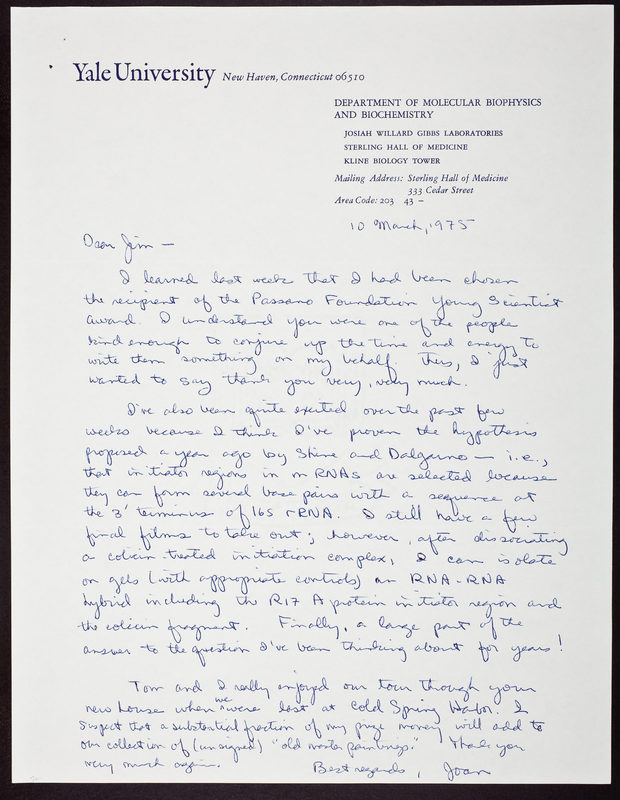 Yale University New Haven, Connecticut 06510
DEPARTMENT OF MOLECULAR BIOPHYSICS
AND BIOCHEMISTRY
JOSIAH WILLARD GIBBS LABORATORIES
STERLING HALL OF MEDICINE
KLINE BIOLOGY TOWER
Mailing Address: Sterling Hall of Medicine
333 Cedar Street
Area Code: 203 43 –
10 March, 1975
Dear Jim —
I learned last week that I had been chosen
the recipient of the Passano Foundation Young Scientist
award. I understand you were one of the people
kind enough to conjure up the time and energy to
write them something on my behalf. Thus, I just
wanted to say thank you very, very much.
I've also been quite excited over the past few
weeks because I think I've proven the hypothesis
proposed a year ago by Shine and Dalgarno — i.e.,
that initiator regions in mRNAs are selected because
they can form several base pairs with a sequence at
the 3' terminus of 16S rRNA. I still have a few
final films to take out; however, after dissociating
a colicin treated initiation complex, I can isolate
on gels (with appropriate controls) an RNA-RNA
hybrid including the R17 A protein initiator region and
the colicin fragment. Finally, a large part of the
answer to the question I've been thinking about for years!
Tom and I really enjoyed our tour through your
new house when we were last at Cold Spring Harbor. I
suspect that a substantial fraction of my prize money will add to
our collection of (unsigned) "old master paintings." Thank you
very much again.
Best regards, Joan